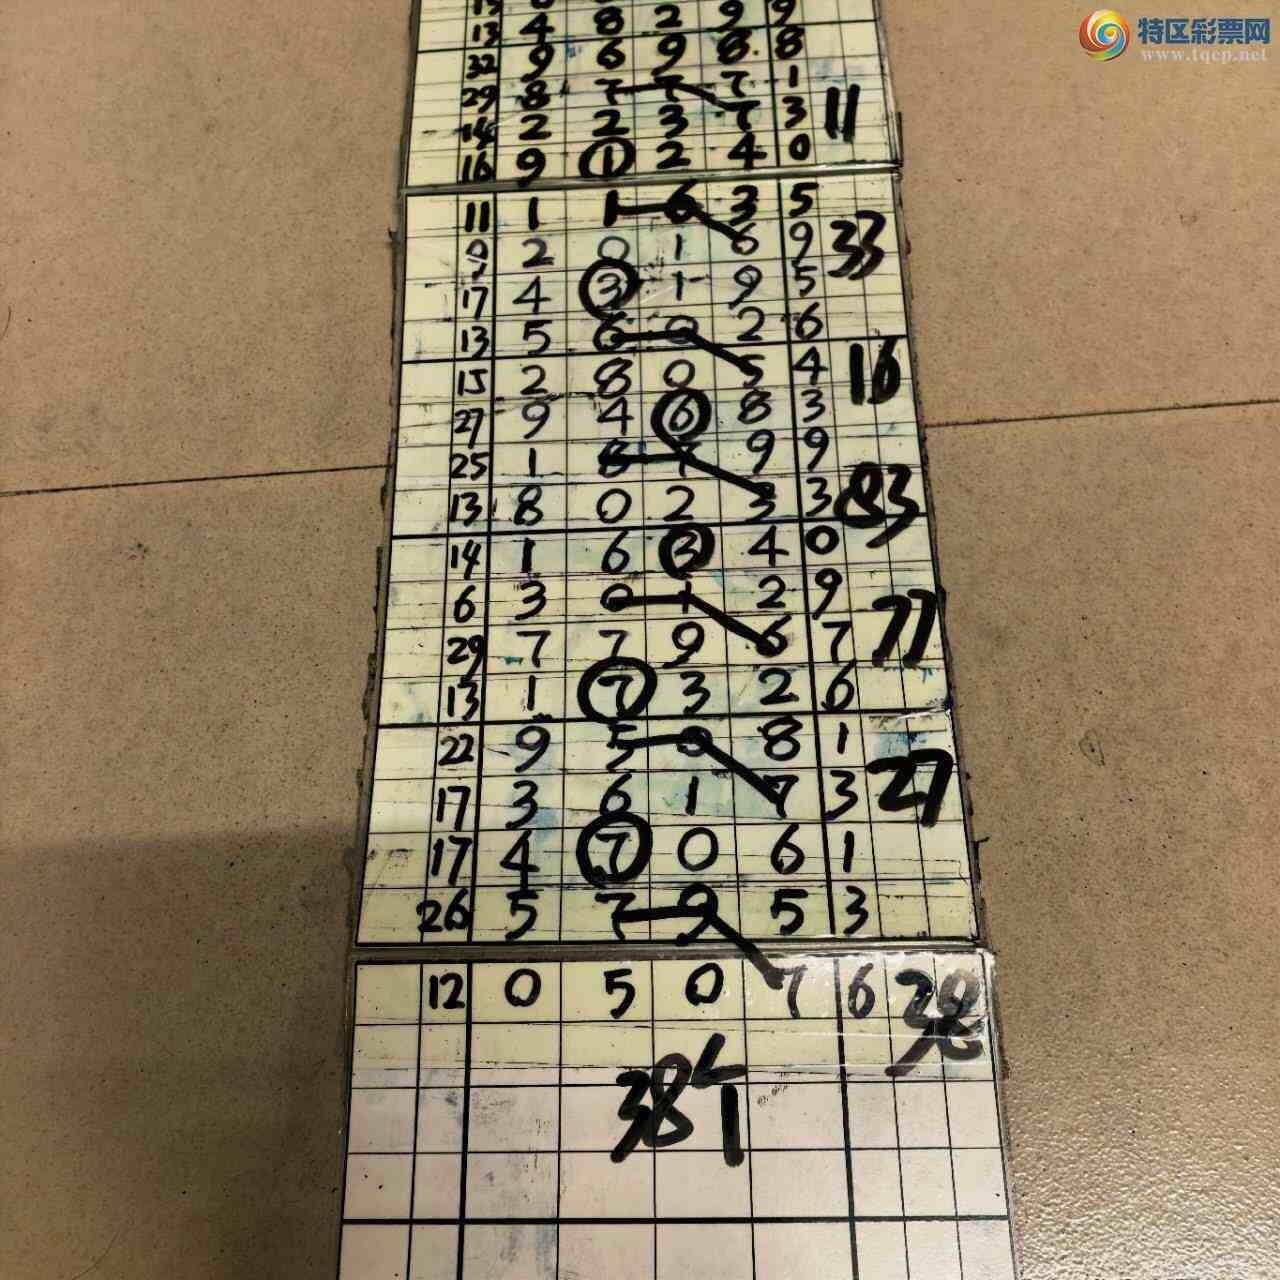 特区彩票网
www.tqcp.net
13 4 8 2 9 9
32 9 6 9 8 8
29 8 7 7 7 1
14 2 2 3 7 3 11
16 9 1 2 4 0
11 1 1 6 3 5
9 2 0 1 6 9 33
17 4 3 1 9 5
13 5 6 0 2 6
15 2 8 0 5 4 16
27 9 4 6 8 3
25 1 8 7 9 9
13 8 0 2 3 3 83
14 1 6 3 4 0
6 3 0 1 2 9
29 7 7 9 6 7 77
13 1 7 3 2 6
22 9 5 0 8 1
17 3 6 1 7 3 27
17 4 7 0 6 1
26 5 7 9 5 3
12 0 5 0 7 6 38
38